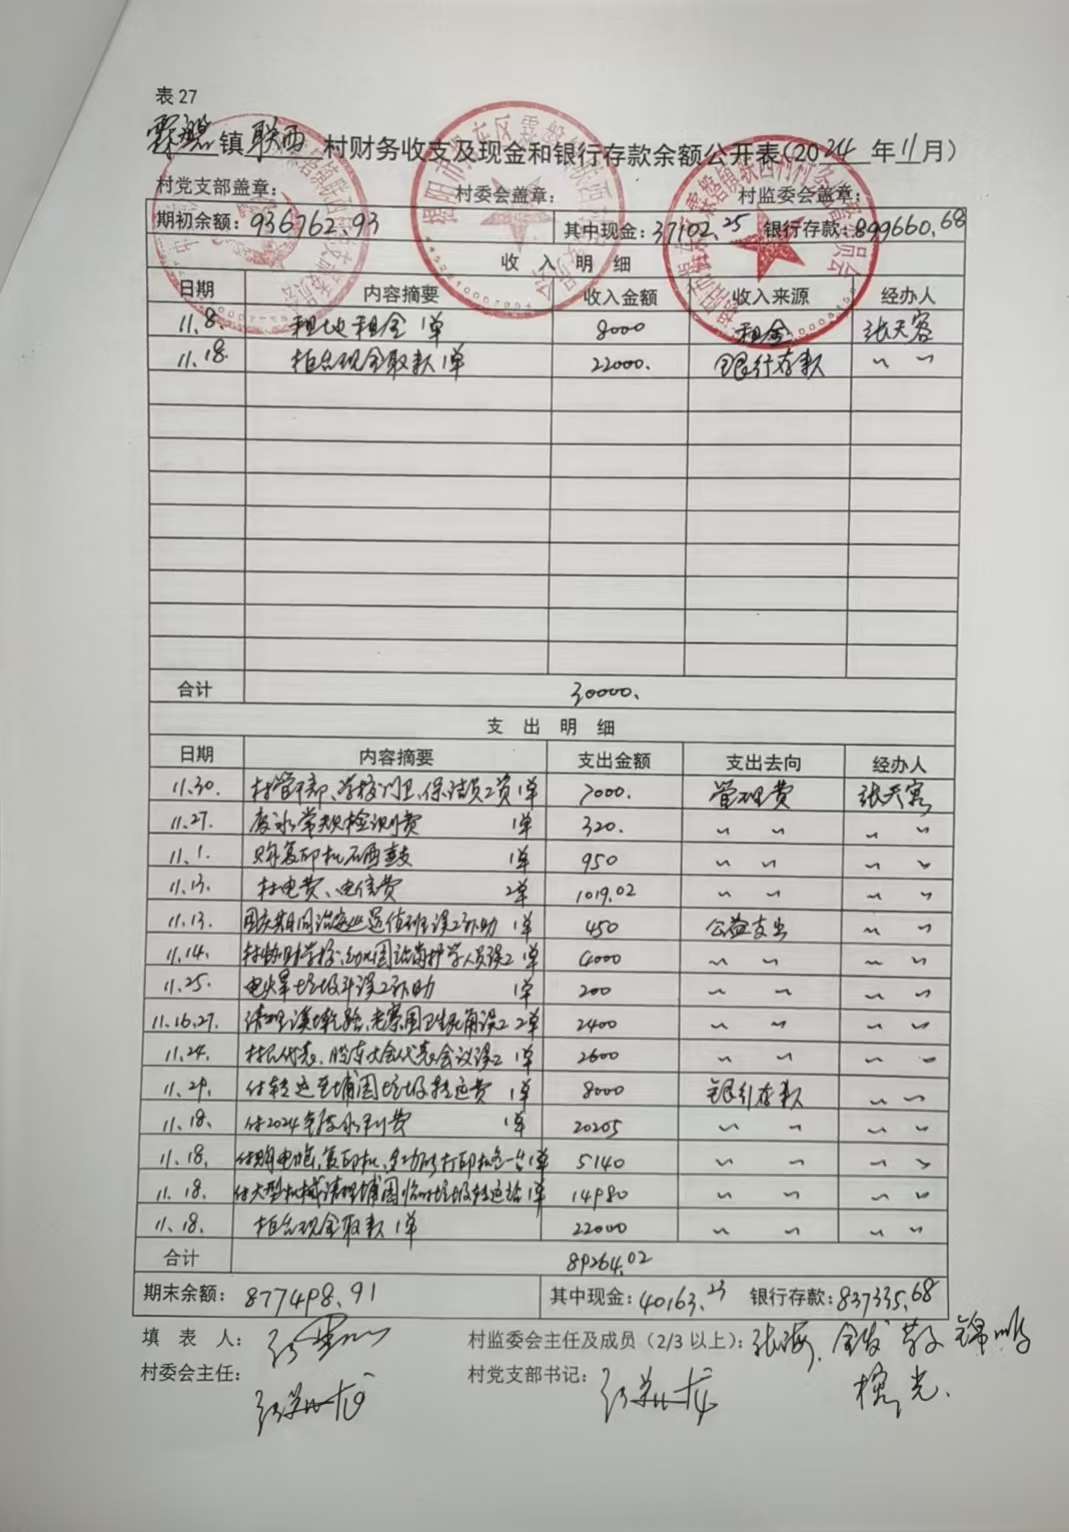 表27
霖磐镇联西村财务收支及现金和银行存款余额公开表(2024年11月)
村党支部盖章： 村委会盖章： 村监委会盖章：
期初余额：936762.93 其中现金：37102.25 银行存款：899660.68
收入明细
日期 内容摘要 收入金额 收入来源 经办人
11.8. 租地租金1单 8000 租金 张天容
11.18. 柜台现金取款1单 22000. 银行存款 〃 〃
合计 30000.
支出明细
日期 内容摘要 支出金额 支出去向 经办人
11.30. 村管干部、学校门卫、保洁员工资1单 7000. 管理费 张天容
11.27. 废水常规检测费 1单 320. 〃 〃 〃 〃
11.1. 购复印机石西鼓 1单 950 〃 〃 〃 〃
11.13. 村电费、电信费 2单 1019.02 〃 〃 〃 〃
11.13. 国庆期间治安巡逻值班误工补助 1单 450 公益支出 〃 〃
11.14. 村协助学校、幼儿园站岗护学人员误工 1单 4000 〃 〃 〃 〃
11.25. 垃圾误工补助 1单 200 〃 〃 〃 〃
11.16.27. 清理卫生死角误工 2单 2400 〃 〃 〃 〃
11.24. 村民代表、股东大会代表会议误工 1单 2600 〃 〃 〃 〃
11.29. 付转运至埔围垃圾转运费 1单 8000 银行存款 〃 〃
11.18. 付2024年度水利费 1单 20205 〃 〃 〃 〃
11.18. 付购电脑、复印机、多功能打印机各一台1单 5140 〃 〃 〃 〃
11.18. 付大型机械清理埔围临时垃圾转运站1单 14980 〃 〃 〃 〃
11.18. 柜台现金取款1单 22000 〃 〃 〃 〃
合计 89264.02
期末余额：877498.91 其中现金：40163.23 银行存款：837335.68
填表人： 村监委会主任及成员（2/3以上）：张海、
村委会主任： 村党支部书记：